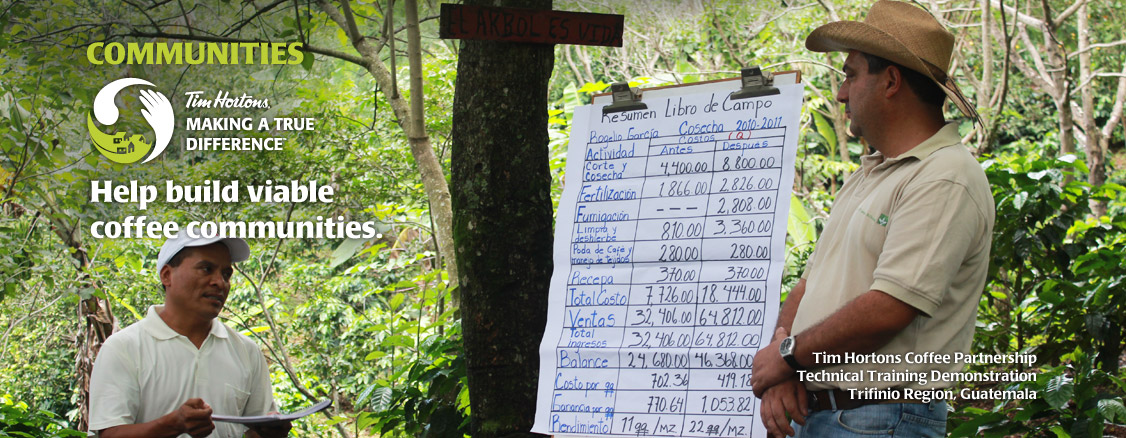 EL ARBOL ES VIDA
COMMUNITIES
Tim Hortons
MAKING A TRUE
DIFFERENCE
Help build viable
coffee communities.
Resumen Libro de Campo
Rogelio García Cosecha 2010-2011
Costos (Q)
Actividad Antes Después
Corte y
Cosecha 4,400.00 8,800.00
Fertilización 1,866.00 2,826.00
Fumigación --- 2,808.00
Limpia y
deshierbe 810.00 3,360.00
Poda de Café y
manejo de tejidos 280.00 280.00
Recepa 370.00 370.00
Total Costo 7,726.00 18,444.00
Ventas 32,406.00 64,812.00
Total
Ingresos 32,406.00 64,812.00
Balance 24,680.00 46,368.00
Costo por qq 702.36 419.18
Ganancia por qq 770.64 1,053.82
Rendimiento 11qq/MZ 22qq/MZ
Tim Hortons Coffee Partnership
Technical Training Demonstration
Trifinio Region, Guatemala